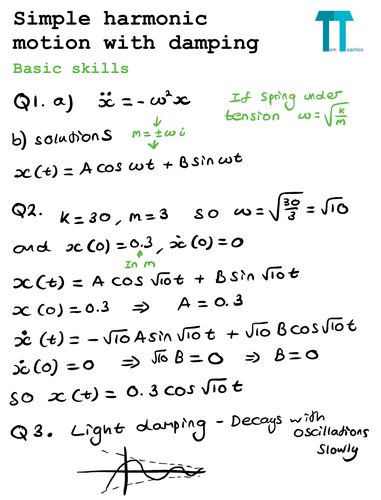 Simple harmonic
motion with damping
TT
Tom Teaches
Basic skills
Q1. a) ẍ = -ω²x
If spring under
tension ω = √(k/m)
b) solutions m = ±ωi
x(t) = A cos ωt + B sin ωt
Q2. k = 30, m = 3 so ω = √(30/3) = √10
and x(0) = 0.3, ẋ(0) = 0
In m
x(t) = A cos √10 t + B sin √10 t
x(0) = 0.3 ⇒ A = 0.3
ẋ(t) = -√10 A sin √10 t + √10 B cos √10 t
ẋ(0) = 0 ⇒ √10 B = 0 ⇒ B = 0
so x(t) = 0.3 cos √10 t
Q3. Light damping - Decays with
oscillations
slowly